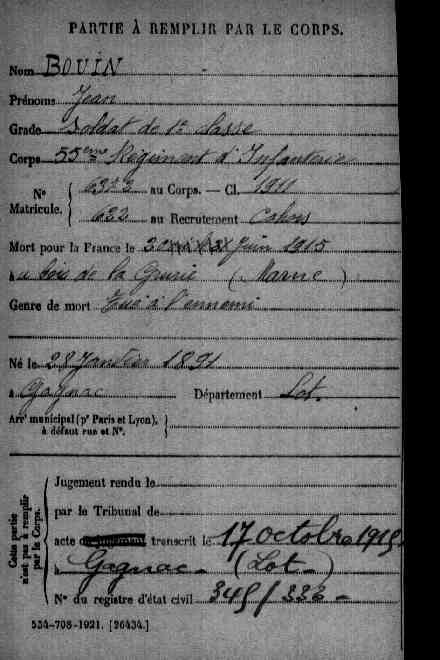 PARTIE À REMPLIR PAR LE CORPS.
Nom BOUIN
Prénoms Jean
Grade Soldat de 1e classe
Corps 55eme Régiment d'Infanterie
N° Matricule. { au Corps. — Cl. 1911
622 au Recrutement Cahors
Mort pour la France le 30 Juin 1915
au bois de la Grurie (Marne)
Genre de mort Tué à l'ennemi
Né le 28 Janvier 1891
à Gagnac Département Lot.
Arrt municipal (pr Paris et Lyon), }
à défaut rue et N°.
Cette partie n'est pas à remplir par le Corps.
Jugement rendu le
par le Tribunal de
acte transcrit le 17 octobre 1915
à Gagnac - (Lot -)
N° du registre d'état civil 345/222 -
534-708-1921. [26434.]